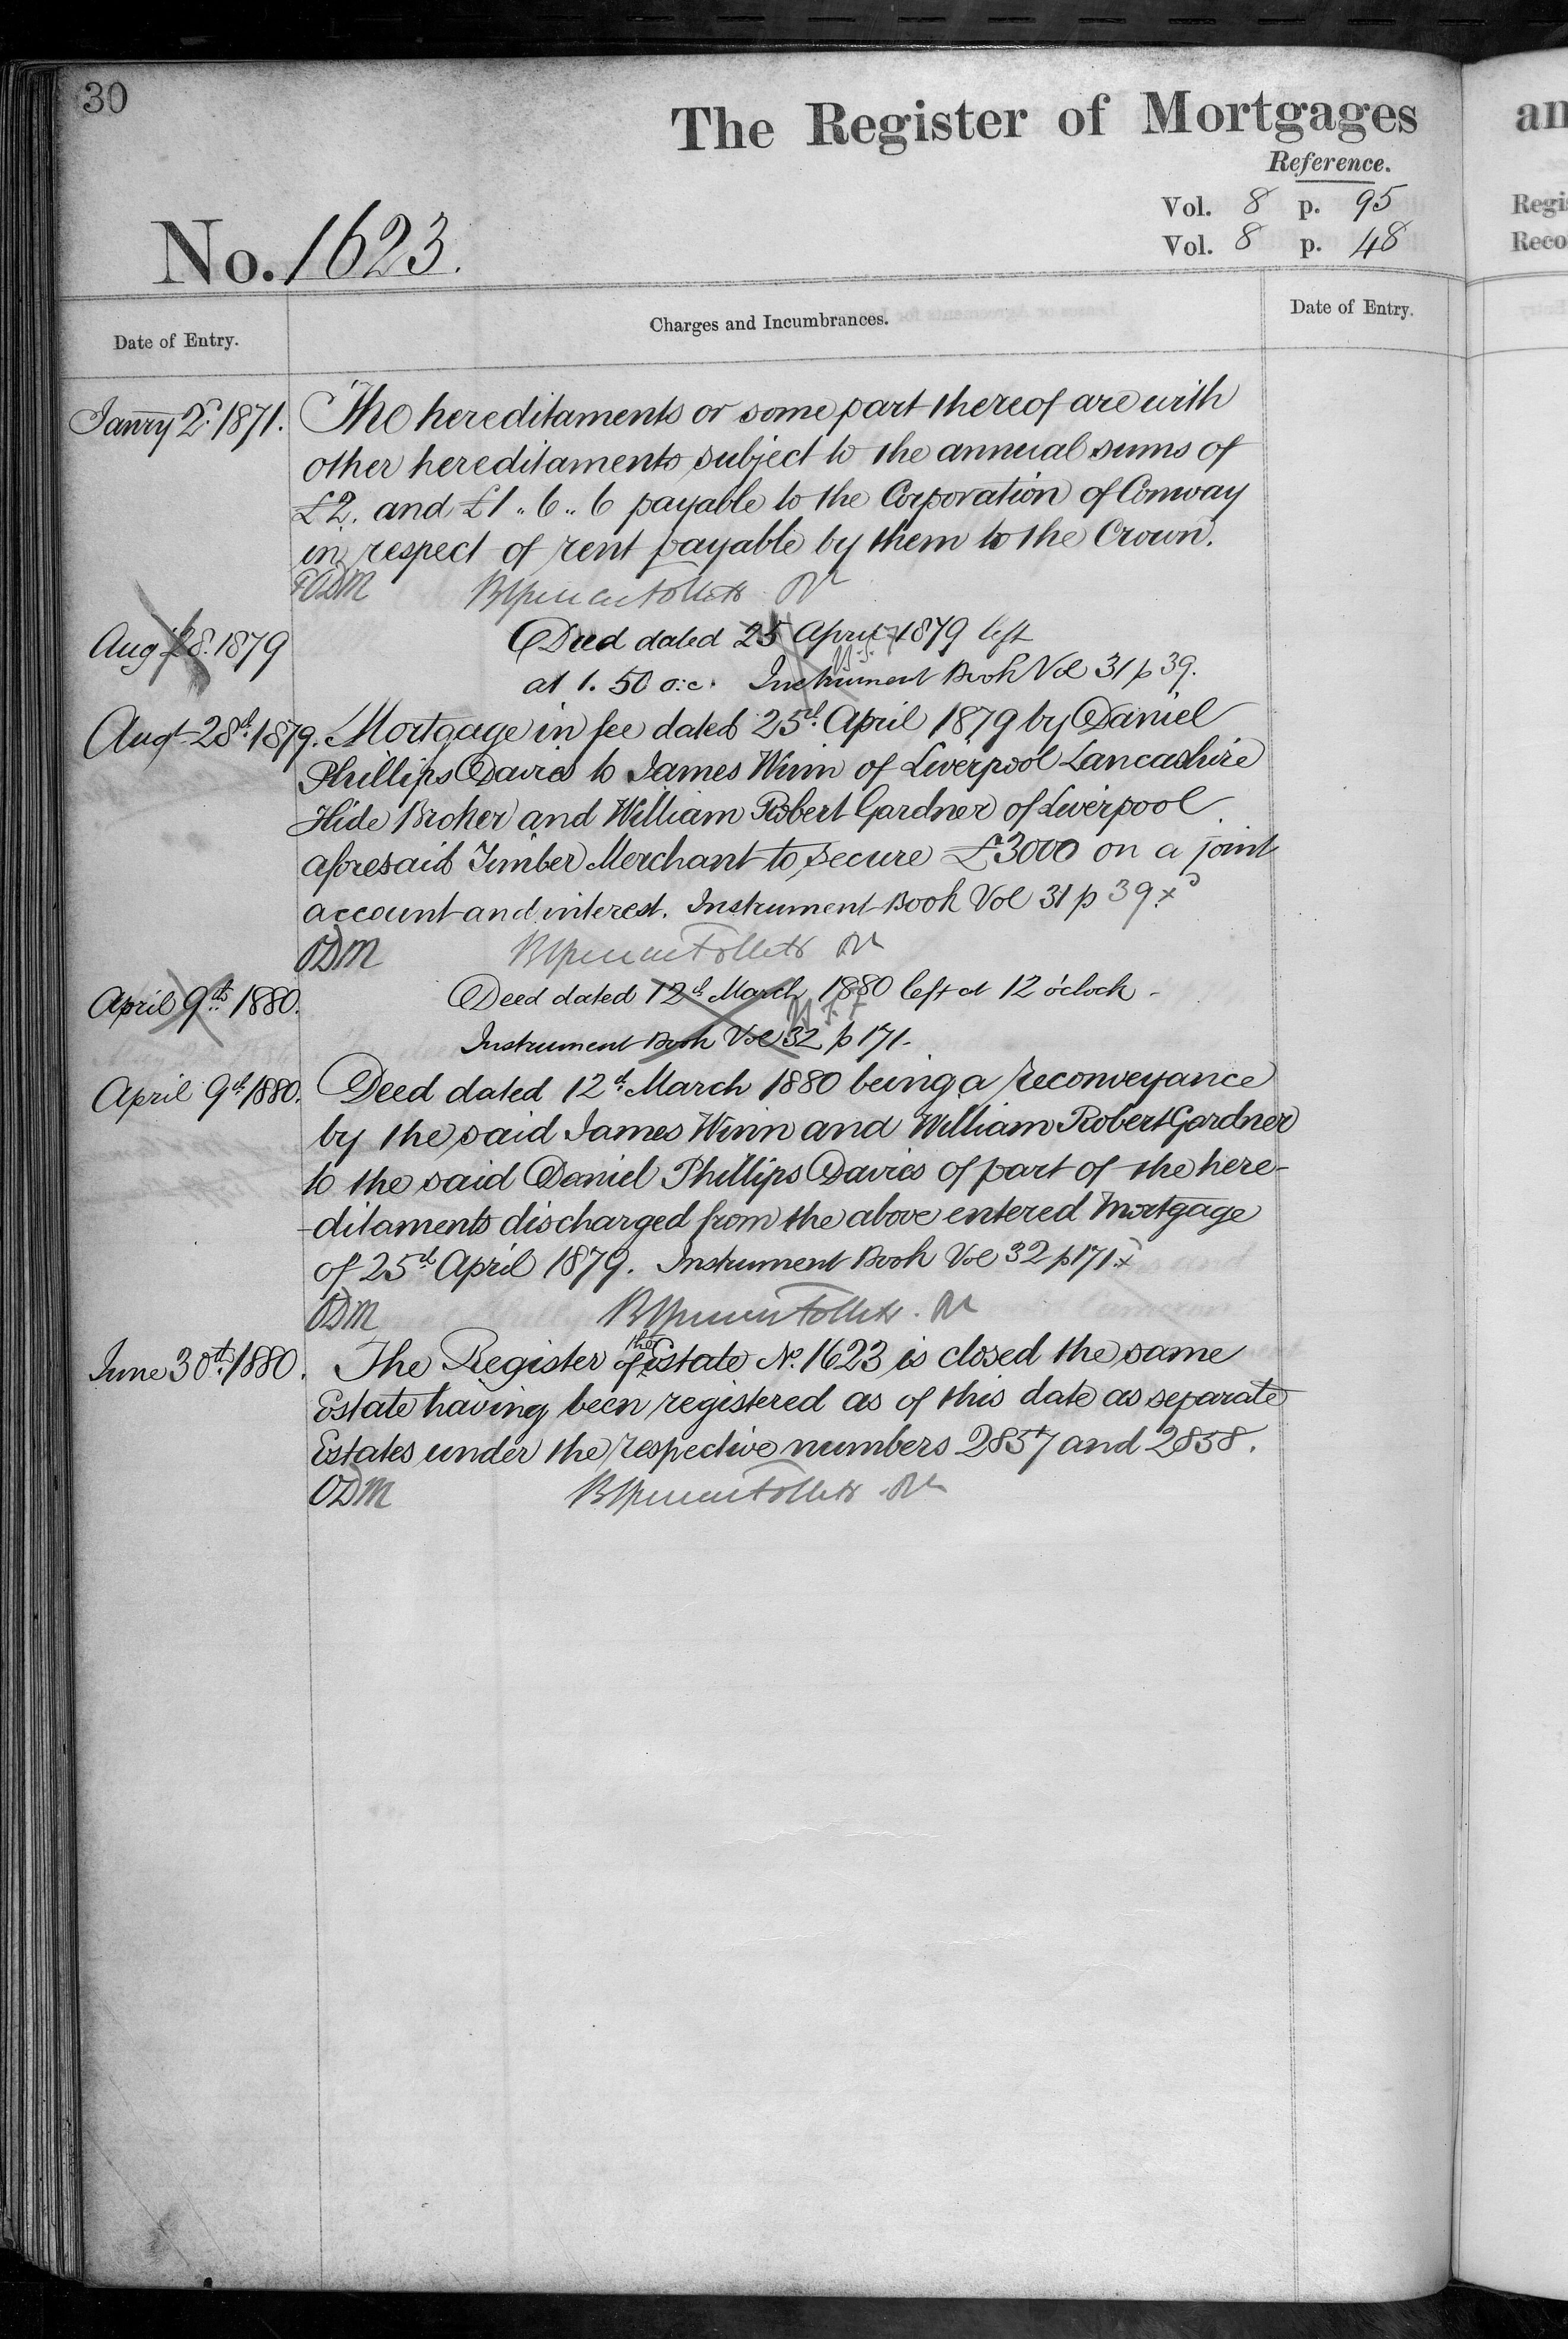 30
The Register of Mortgages
Reference.
Vol. 8 p. 95
Vol. 8 p. 48
No. 1623.
Date of Entry.
Charges and Incumbrances.
Date of Entry.
Janry 2d. 1871. The hereditaments or some part thereof are with
other hereditaments subject to the annual sums of
£2. and £1 .. 6 .. 6 payable to the Corporation of Conway
in respect of rent payable by them to the Crown.
Augt 28. 1879 Deed dated 25 April 1879 left
at 1. 50 o:c. Instrument Book Vol 31 p 39.
Augt 28th. 1879. Mortgage in fee dated 25th. April 1879 by Daniel
Phillips Davies to James Winn of Liverpool Lancashire
Hide Broker and William Robert Gardner of Liverpool
aforesaid Timber Merchant to secure £3000 on a joint
account and interest. Instrument Book Vol 31 p 39. x
ODM
April 9th. 1880. Deed dated 12th March 1880 left at 12 o'clock -
Instrument Book Vol 32 p 171.
April 9th. 1880. Deed dated 12th. March 1880 being a reconveyance
by the said James Winn and William Robert Gardner
to the said Daniel Phillips Davies of part of the here-
-ditaments discharged from the above entered Mortgage
of 25th April 1879. Instrument Book Vol 32 p 171. x
ODM
June 30th. 1880. The Register of the Estate No. 1623 is closed the same
Estate having been registered as of this date as separate
Estates under the respective numbers 2857 and 2858.
ODM
an
Regis
Reco